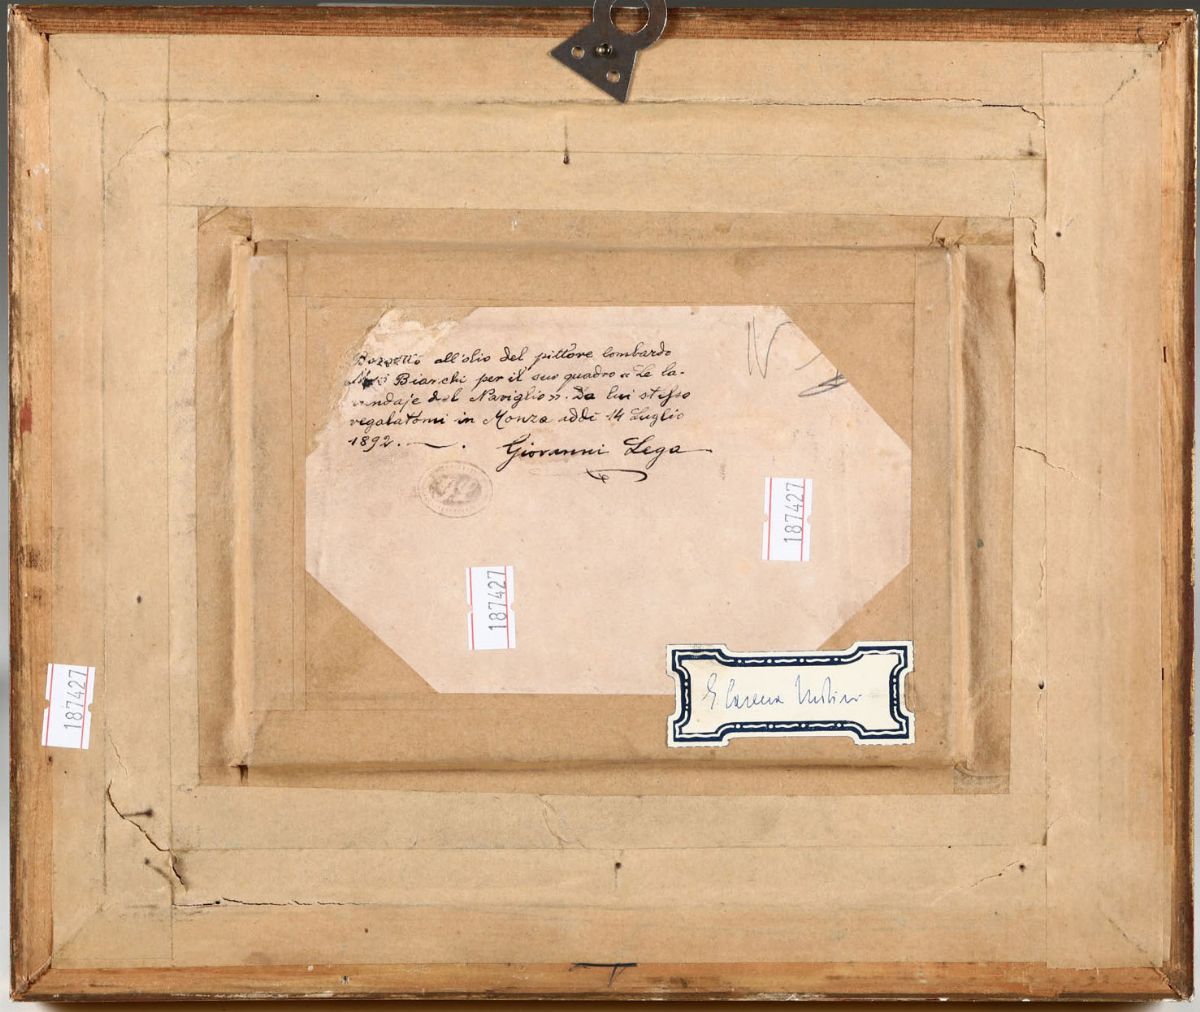 Bozzetto all'olio del pittore lombardo
Mosè Bianchi per il suo quadro «Le la-
vandaje del Naviglio». Da lui stesso
regalatomi in Monza addì 14 Luglio
1892.
Giovanni Lega
187427
187427
187427